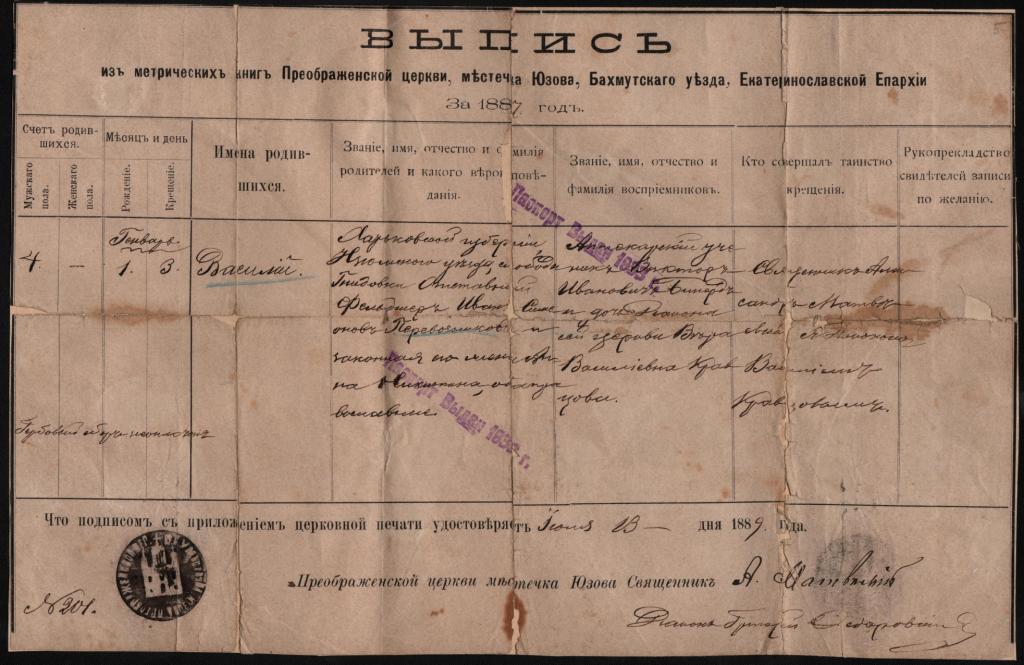 ВЫПИСЬ
изъ метрическихъ книгъ Преображенской церкви, мѣстечка Юзова, Бахмутскаго уѣзда, Екатеринославской Епархіи
За 1887 годъ.
Счетъ родив-
шихся.
Мужскаго
пола.
Женскаго
пола.
Мѣсяцъ и день
Рожденіе.
Крещеніе.
Имена родив-
шихся.
Званіе, имя, отчество и фамилія
родителей и какого вѣроисповѣ-
данія.
Званіе, имя, отчество и
фамилія воспріемниковъ.
Кто совершалъ таинство
крещенія.
Рукоприкладство
свидѣтелей записи
по желанію.
4.
—
Генварь
1.
3.
Василій.
Харьковской губерніи
уѣзда,
Отставной
Фельдшеръ Иванъ
Перевозчиковъ и
законная его жена Ан-
на Никитина, оба пра
вославные.
Аптекарскій уче
никъ Викторъ
Ивановичъ
и дочь Діакона
сей церкви Вѣра
Василіевна Крав
цова.
Священникъ Алек
сандръ Матвѣ
евскій
Василіемъ
Кравцовымъ.
Паспорт Выдан 1933 г.
Паспорт Выдан 1933 г.
Гербовый сборъ
Что подписомъ съ приложеніемъ церковной печати удостовѣряетъ Іюля 13 — дня 1889 года.
Преображенской церкви мѣстечка Юзова Священникъ А. Матвѣевскій
№ 201.
Діаконъ Григорій